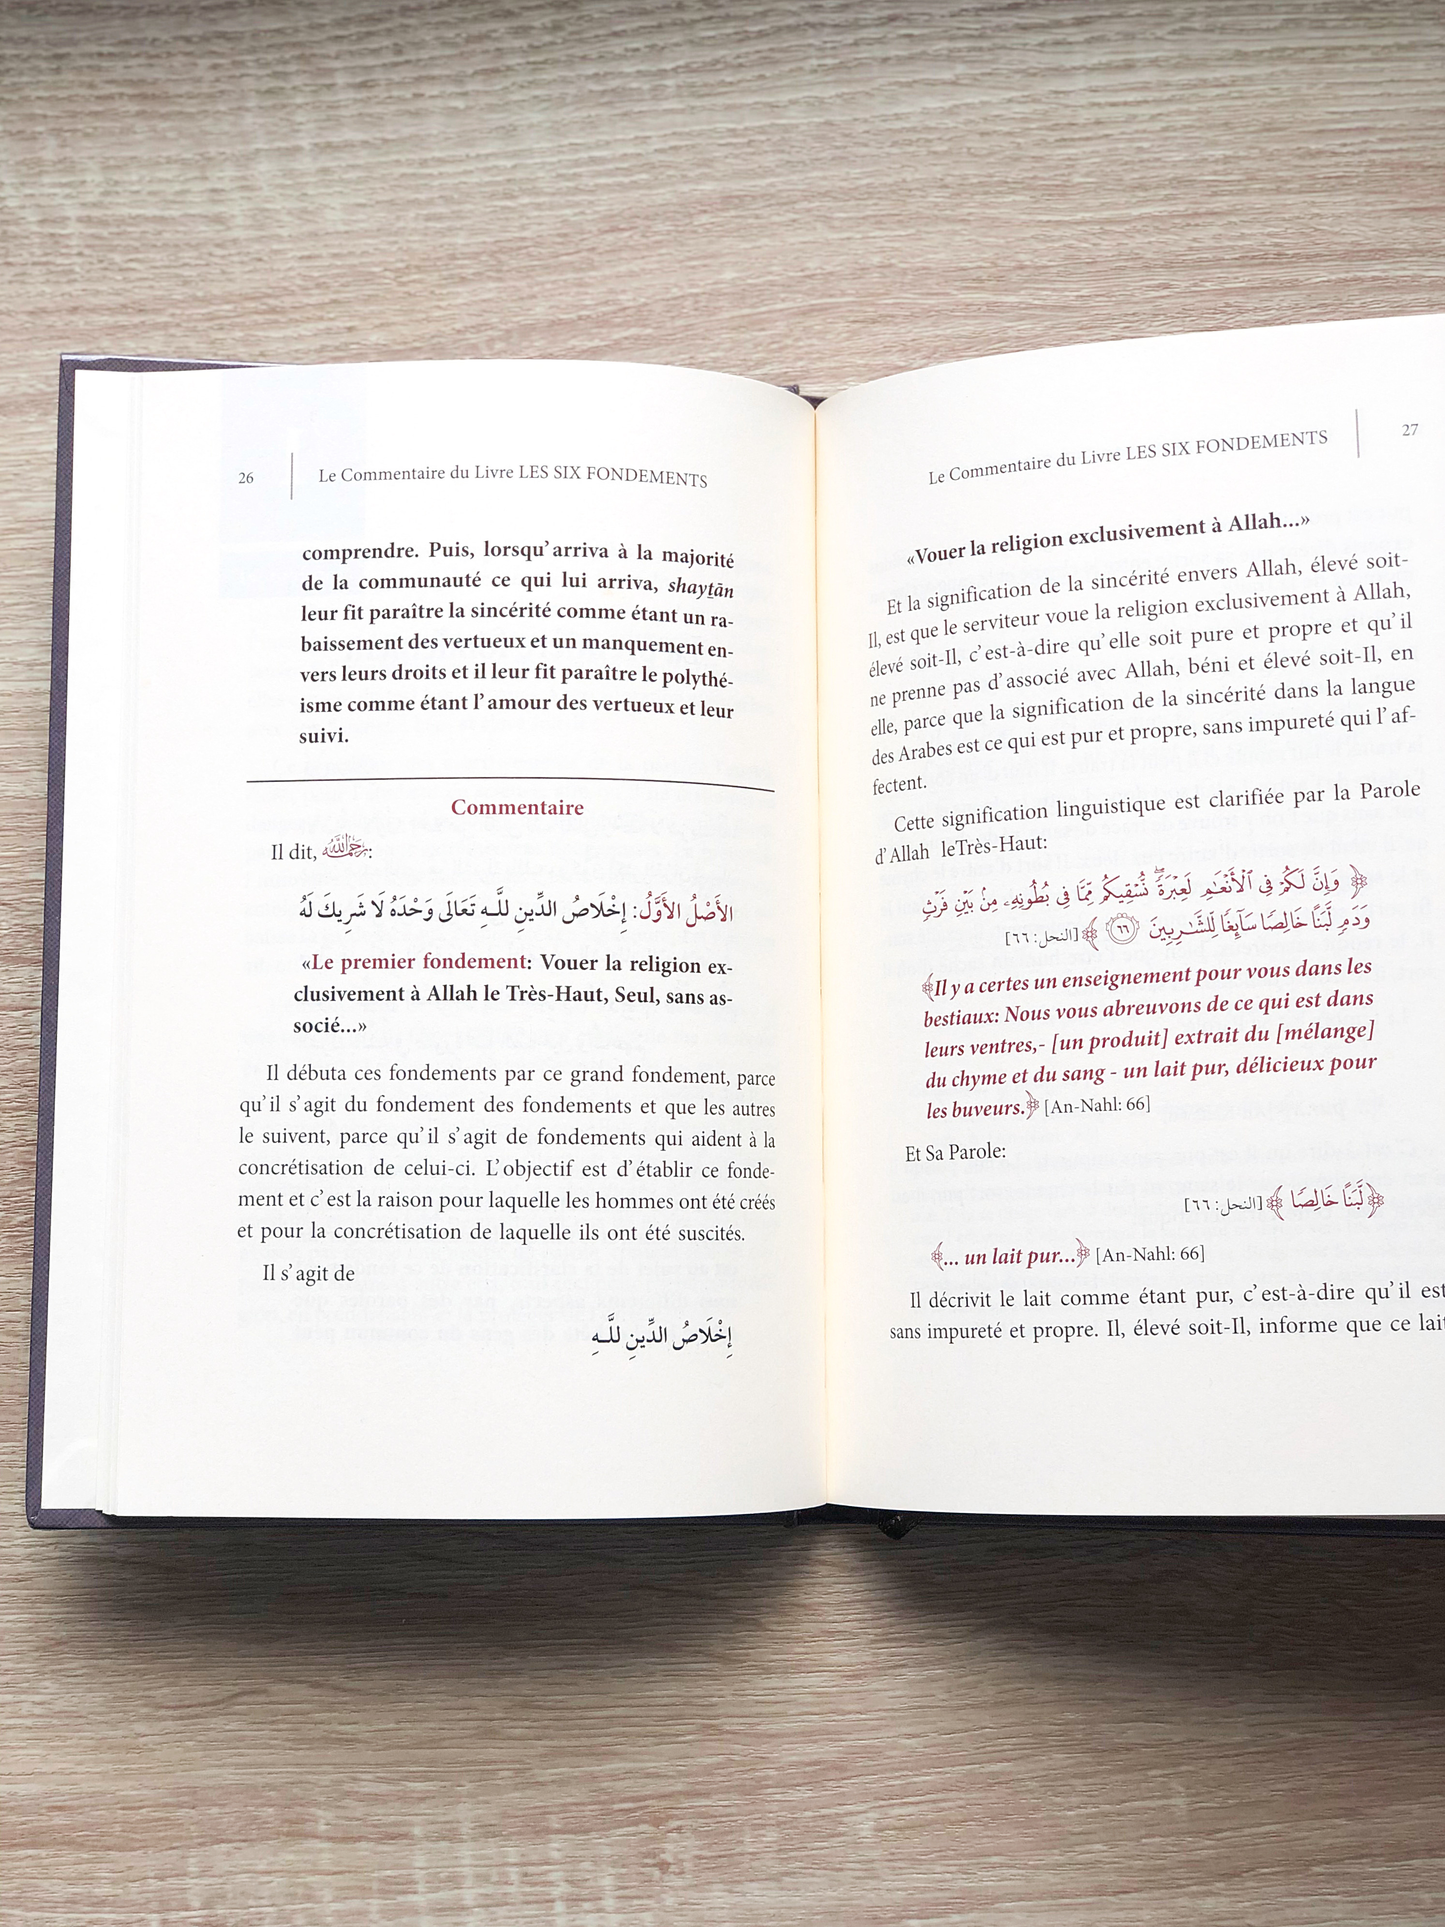 26
Le Commentaire du Livre LES SIX FONDEMENTS
comprendre. Puis, lorsqu'arriva à la majorité
de la communauté ce qui lui arriva, shayṯān
leur fit paraître la sincérité comme étant un ra-
baissement des vertueux et un manquement en-
vers leurs droits et il leur fit paraître le polythé-
isme comme étant l'amour des vertueux et leur
suivi.
Commentaire
Il dit, رحمه الله:
الأَصْلُ الأَوَّلُ: إِخْلَاصُ الدِّينِ للَّـهِ تَعَالَى وَحْدَهُ لَا شَرِيكَ لَهُ
«Le premier fondement: Vouer la religion ex-
clusivement à Allah le Très-Haut, Seul, sans as-
socié...»
Il débuta ces fondements par ce grand fondement, parce
qu'il s'agit du fondement des fondements et que les autres
le suivent, parce qu'il s'agit de fondements qui aident à la
concrétisation de celui-ci. L'objectif est d'établir ce fonde-
ment et c'est la raison pour laquelle les hommes ont été créés
et pour la concrétisation de laquelle ils ont été suscités.
Il s'agit de
إِخْلَاصُ الدِّينِ للَّـهِ
Le Commentaire du Livre LES SIX FONDEMENTS
27
«Vouer la religion exclusivement à Allah...»
Et la signification de la sincérité envers Allah, élevé soit-
Il, est que le serviteur voue la religion exclusivement à Allah,
élevé soit-Il, c'est-à-dire qu'elle soit pure et propre et qu'il
ne prenne pas d'associé avec Allah, béni et élevé soit-Il, en
elle, parce que la signification de la sincérité dans la langue
des Arabes est ce qui est pur et propre, sans impureté qui l'af-
fectent.
Cette signification linguistique est clarifiée par la Parole
d'Allah leTrès-Haut:
﴿ وَإِنَّ لَكُمْ فِي ٱلْأَنْعَٰمِ لَعِبْرَةً ۖ نُّسْقِيكُم مِّمَّا فِي بُطُونِهِۦ مِنۢ بَيْنِ فَرْثٍ
وَدَمٍ لَّبَنًا خَالِصًا سَآئِغًا لِّلشَّٰرِبِينَ ٦٦ ﴾ [النحل: ٦٦]
﴾Il y a certes un enseignement pour vous dans les
bestiaux: Nous vous abreuvons de ce qui est dans
leurs ventres,- [un produit] extrait du [mélange]
du chyme et du sang - un lait pur, délicieux pour
les buveurs.﴿ [An-Nahl: 66]
Et Sa Parole:
﴿ لَّبَنًا خَالِصًا ﴾ [النحل: ٦٦]
﴾... un lait pur...﴿ [An-Nahl: 66]
Il décrivit le lait comme étant pur, c'est-à-dire qu'il est
sans impureté et propre. Il, élevé soit-Il, informe que ce lait